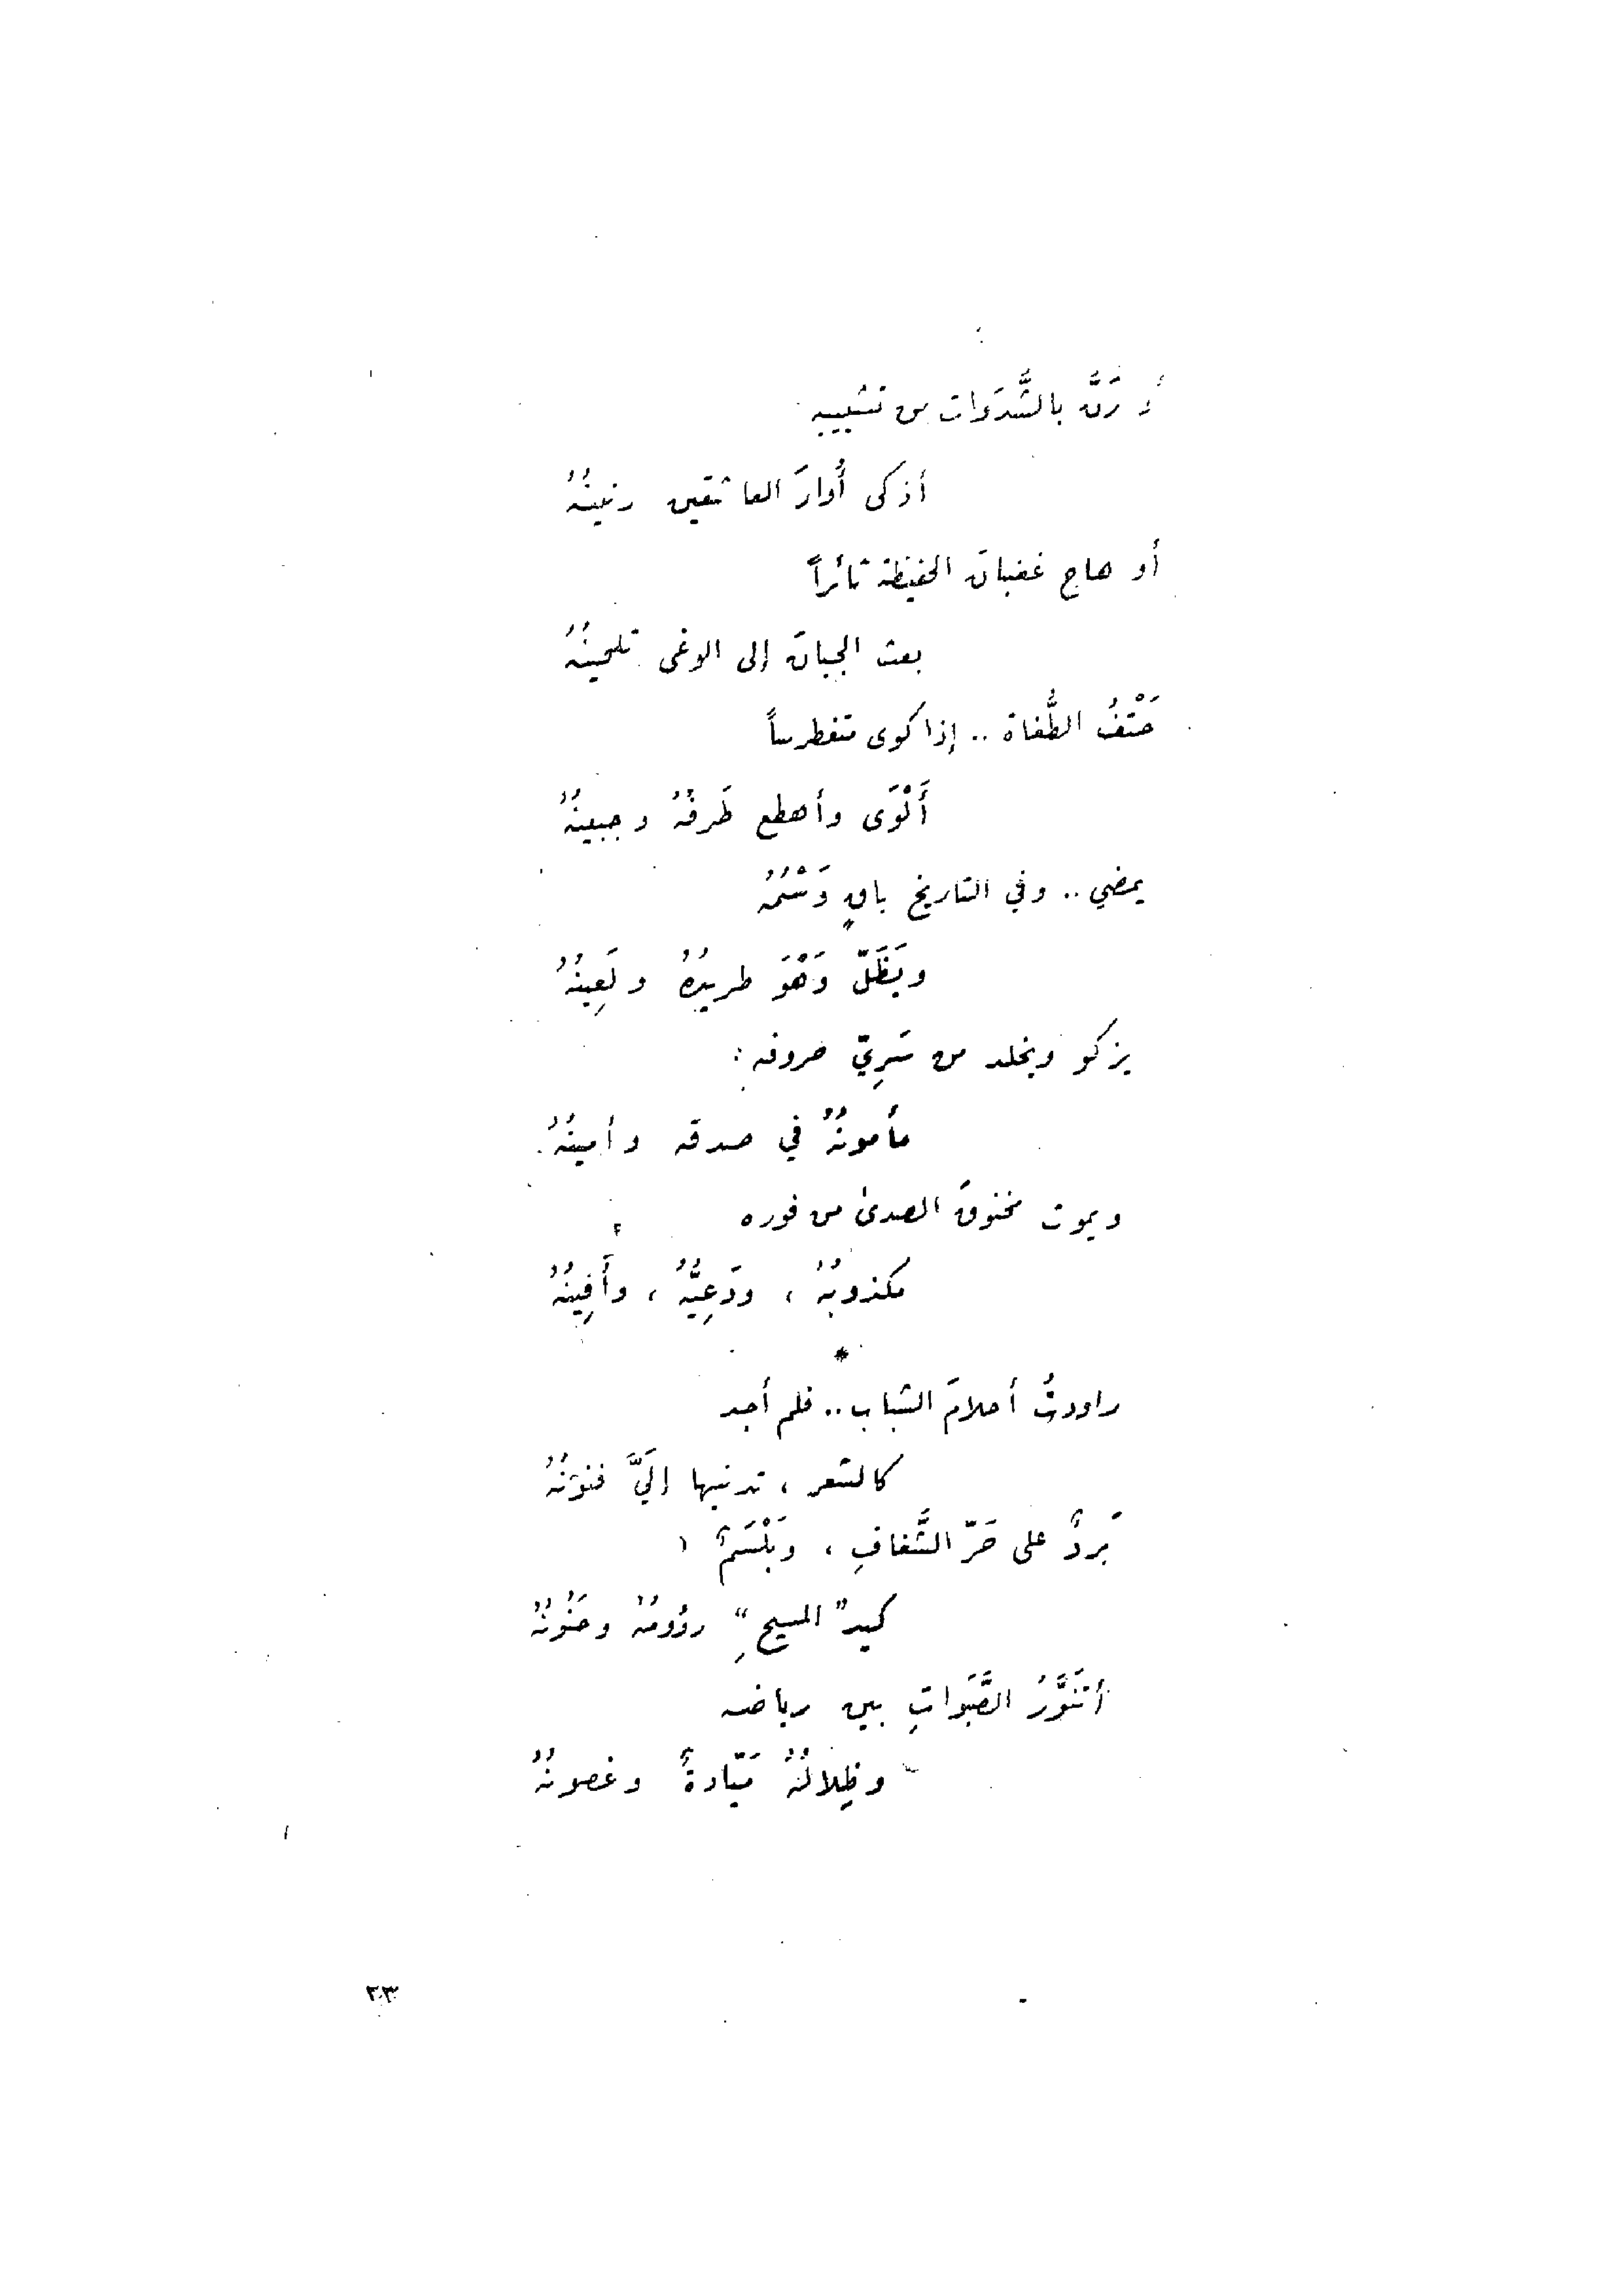 أو رَنَّ بالشَّدَوات من تشبيبه
أذكى أُوارَ العاشقين رنينُهُ
أو هاج غضبانَ الحفيظة ثائراً
بعث الجبانَ إلى الوغى تلحينُهُ
حَتْفُ الطُّغاة .. إذا كوى متغطرساً
أَلْوَى وأهطع طَرفُهُ وجبينُهُ
يمضي .. وفي التاريخ باقٍ وَسْمُهُ
ويَظَلّ وَهْوَ طريدُهُ ولَعِينُهُ
يزكو ويخلد من سَرِيّ حروفه :
مأمونُهُ في صدقه وأمينُهُ
ويموت مخنوقَ الصدى من فوره
مكذوبُهُ ، ودَعِيُّهُ ، وأَفِينُهُ
*
راودتُ أحلامَ الشباب .. فلم أجد
كالشعر ، تدنيها إلَيَّ فنونُهُ
بَردٌ على حَرّ الشَّغافِ ، وبَلْسَمٌ ،
كيد " المسيحِ " رؤومُهُ وحَنُونُهُ
أتَنَوَّرُ الصَّبَواتِ بين رياضه
وظِلالُهُ مَيّادةٌ وغصونُهُ
٢٣